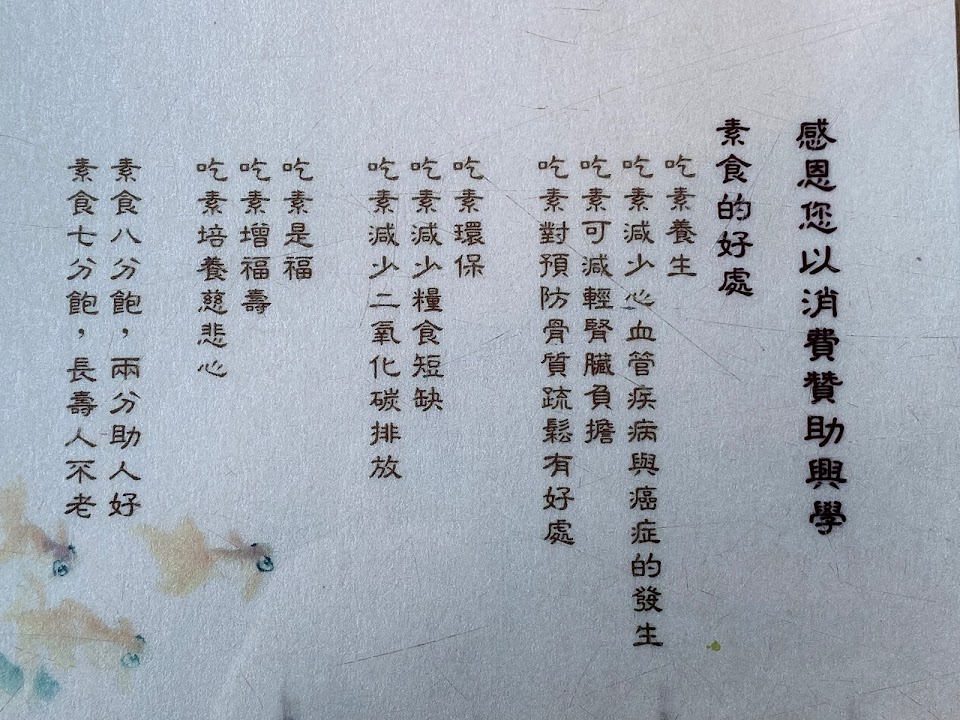 感恩您以消費贊助興學
素食的好處
吃素養生
吃素減少心血管疾病與癌症的發生
吃素可減輕腎臟負擔
吃素對預防骨質疏鬆有好處
吃素環保
吃素減少糧食短缺
吃素減少二氧化碳排放
吃素是福
吃素增福壽
吃素培養慈悲心
素食八分飽，兩分助人好
素食七分飽，長壽人不老